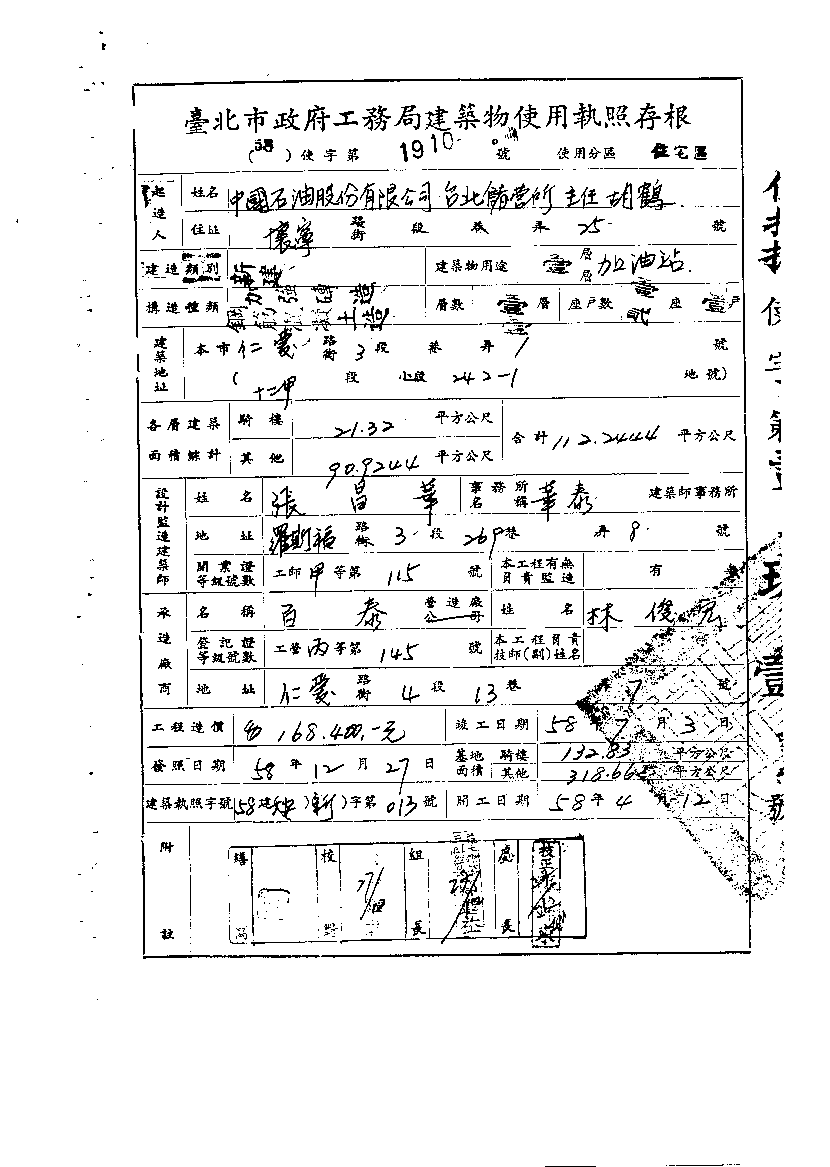 臺北市政府工務局建築物使用執照存根
(58)使字第1910號 使用分區 住宅區
起造人 姓名 中國石油股份有限公司台北儲營所主任胡鶴
住址 懷寧 路街 段 巷 弄 25 號
建造類別 新建 建築物用途 壹層層 加油站
構造種類 加強磚造 鋼筋混凝土造 層數 壹層 座戶數 壹座 壹戶
壹 貳
建築地址 本市 仁愛 路街 3 段 巷 弄 1 號
(十二甲 段 小段 242-1 地號)
各層建築面積餘計 騎樓 21.32 平方公尺 合計 112.2444 平方公尺
其他 90.9244 平方公尺
設計監造建築師 姓名 張昌華 事務所名稱 華泰 建築師事務所
地址 羅斯福 路街 3 段 269 巷 弄 8 號
開業證等級號數 工師甲等第 115 號 本工程有無負責監造 有 無
承造廠商 名稱 百泰 營造廠公司 姓名 林俊
登記證等級號數 工營丙等第 145 號 本工程負責技師(副)姓名
地址 仁愛 路街 4 段 13 巷 7 號
工程造價 168.400.-元 竣工日期 58 年 7 月 3 日
發照日期 58 年 12 月 27 日 基地面積 騎樓 132.83 平方公尺
其他 318.66 平方公尺
建築執照字號 (58建 )(新)字第 013 號 開工日期 58 年 4 月 12 日
附註 繕寫 校對 27/12 組長 處長 技正